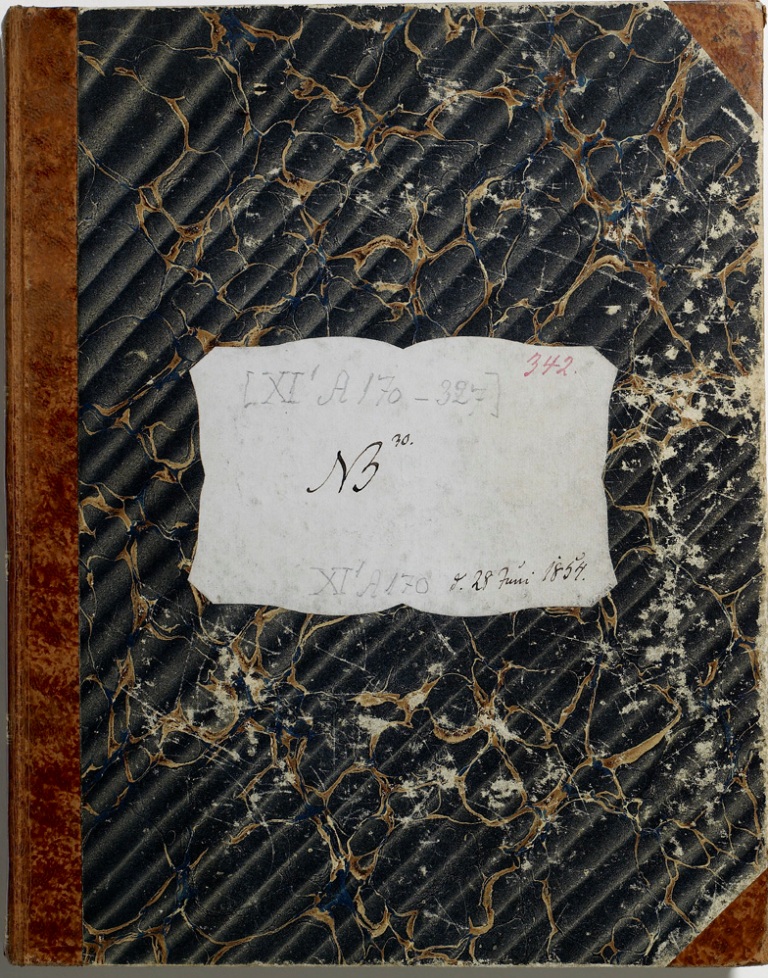 342.
[XI¹ A 170 - 327]
NB 30.
XI¹ A 170 d. 28 Juni 1854.